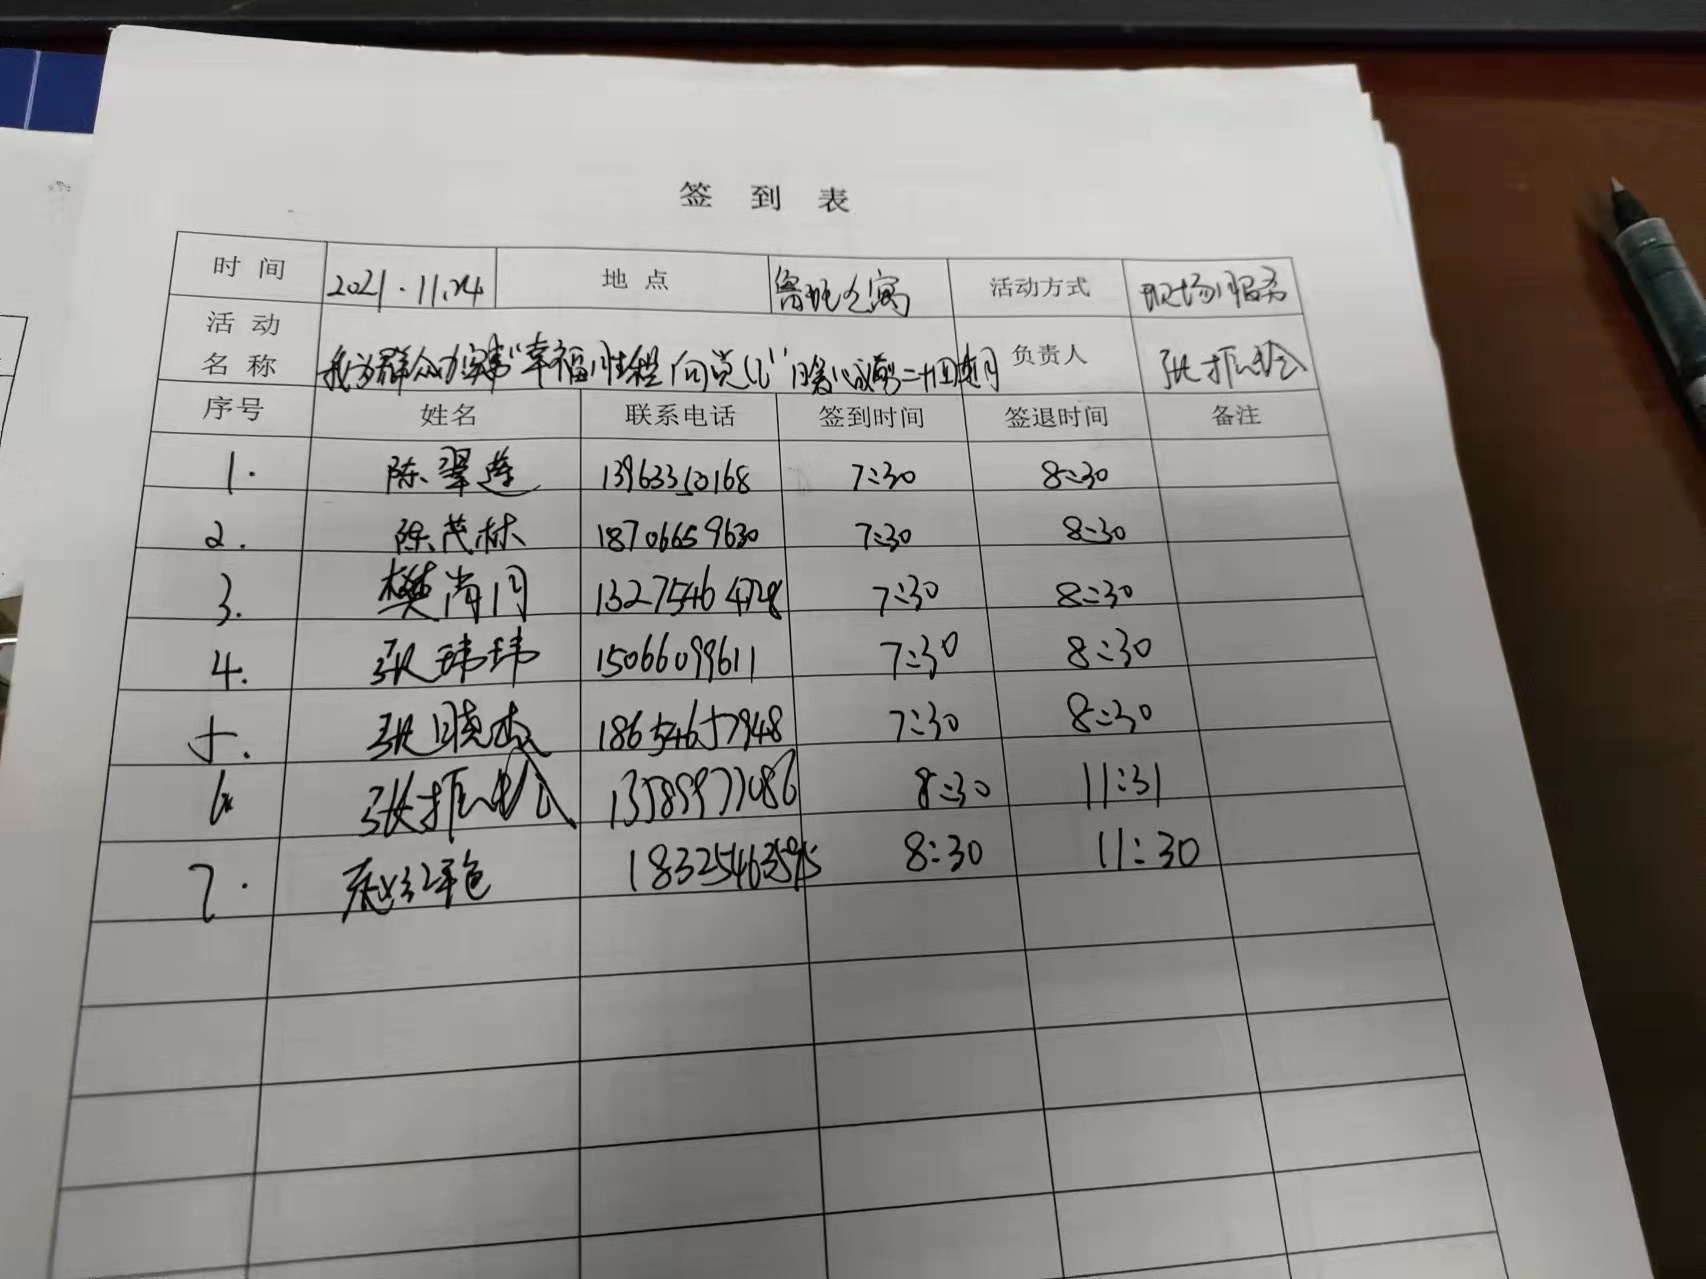 签 到 表
时 间 2021.11.24 地 点 鲁班公寓 活动方式 现场服务
活 动 名 称 我为群众办实事"幸福 向党 " 暖心 二十四 负责人 张振
序号 姓名 联系电话 签到时间 签退时间 备注
1. 陈翠莲 13963350168 7:30 8:30
2. 陈茂林 18706659630 7:30 8:30
3. 樊尚同 13275464728 7:30 8:30
4. 张玮玮 15066099611 7:30 8:30
5. 张晓杰 18654657948 7:30 8:30
6 张振 13589977086 8:30 11:31
7. 赵 183254635 8:30 11:30